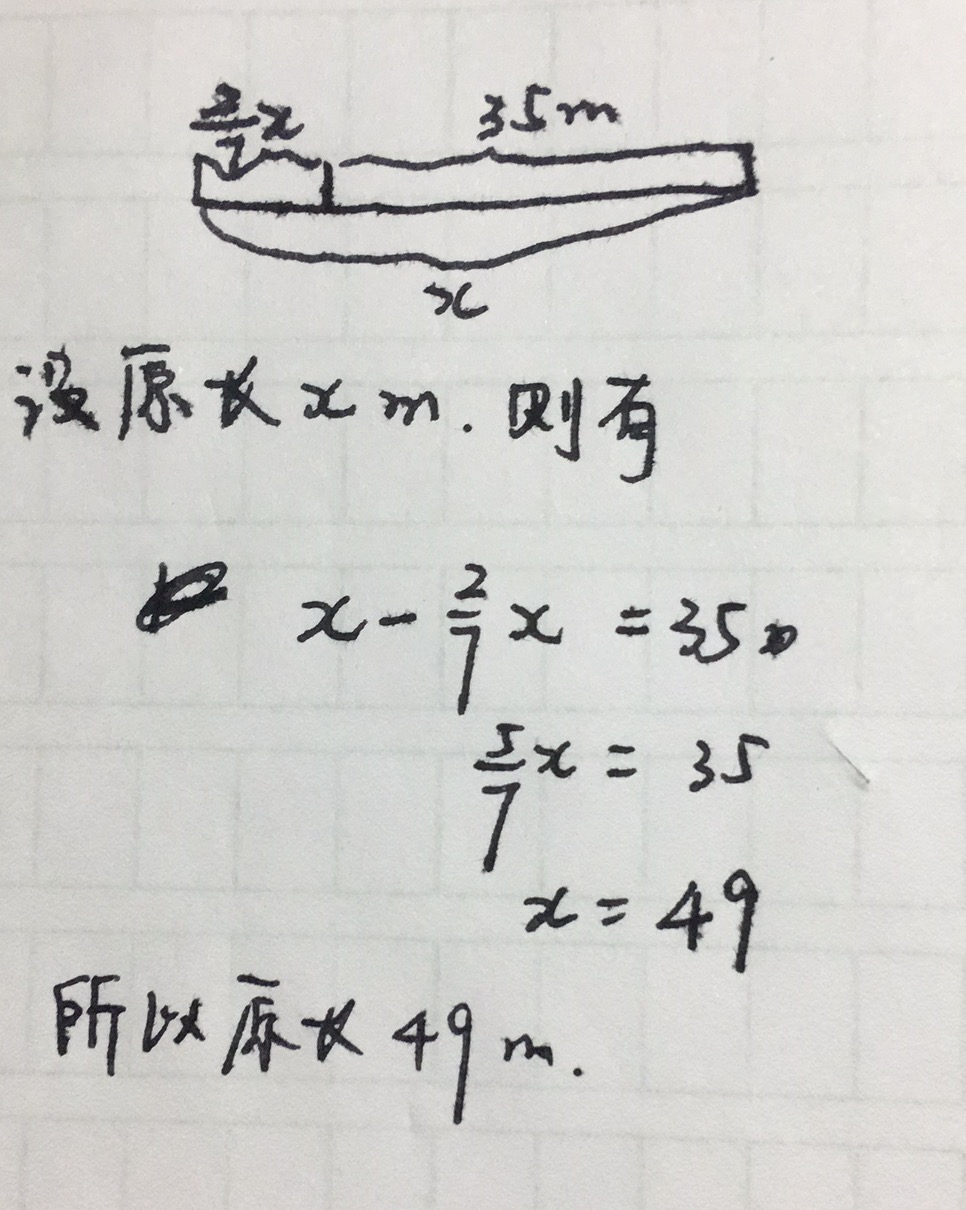 2/7 x 35m
x
设原长 x m. 则有
x - 2/7 x = 35
5/7 x = 35
x = 49
所以原长 49 m.